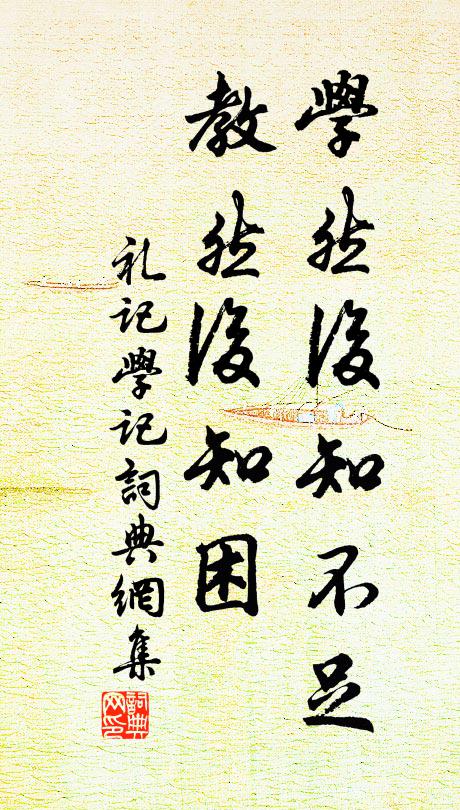 學然後知不足
教然後知困
礼记學记詞典網集
詞典
网印